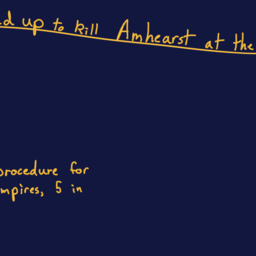 d up to kill Amhearst at the
procedure for
mpires, 5 in